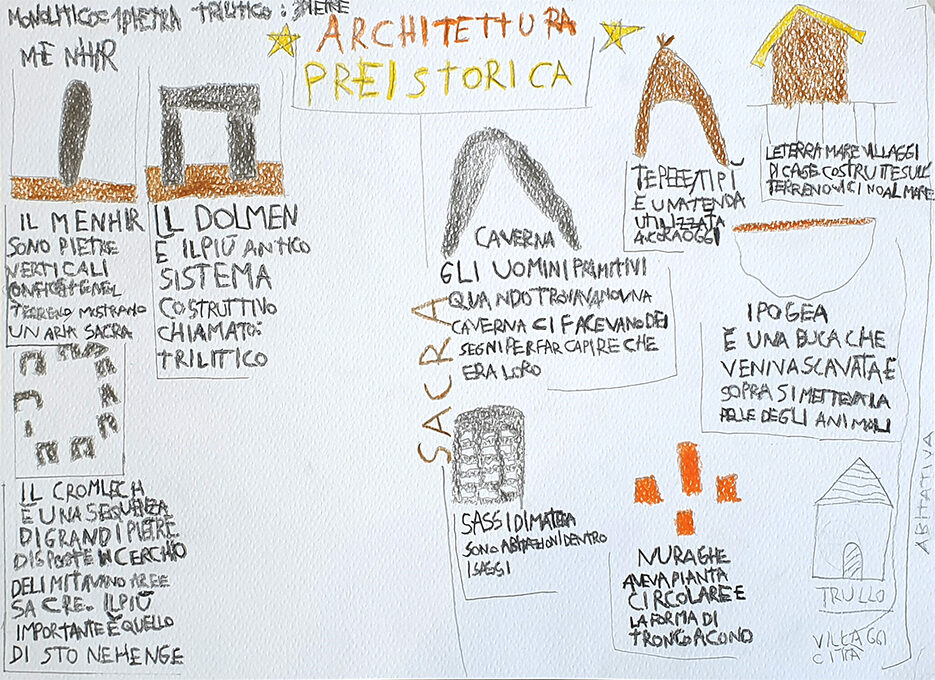 MONOLITICO=1PIETRA TRILITICO: 3PIETRE
ARCHITETTURA
PREISTORICA
MENHIR
IL MENHIR
SONO PIETRE
VERTICALI
CONFICCATE NEL
TERRENO MOSTRANO
UN ARIA SACRA
IL DOLMEN
È IL PIÚ ANTICO
SISTEMA
COSTRUTTIVO
CHIAMATO:
TRILITTICO
IL CROMLECH
È UNA SEQUENZA
DI GRANDI PIETRE
DISPOSTE IN CERCHIO
DELIMITAVANO AREE
SACRE. IL PIÚ
IMPORTANTE È QUELLO
DI STONEHENGE
SACRA
CAVERNA
GLI UOMINI PRIMITIVI
QUANDO TROVAVANO UNA
CAVERNA CI FACEVANO DEI
SEGNI PER FAR CAPIRE CHE
ERA LORO
SASSI DI MATERA
SONO ABITAZIONI DENTRO
I SASSI
TEPEE/TIPÌ
È UNA TENDA
UTILIZZATA
ANCORA OGGI
LE TERRA MARE VILLAGGI
DI CASE COSTRUITE SUL
TERRENO VICINO AL MARE
IPOGEA
È UNA BUCA CHE
VENIVA SCAVATA E
SOPRA SI METTEVA LA
PELLE DEGLI ANIMALI
NURAGHE
AVEVA PIANTA
CIRCOLARE E
LA FORMA DI
TRONCO A CONO
TRULLO
VILLAGGI
CITTÀ
ABITATIVA